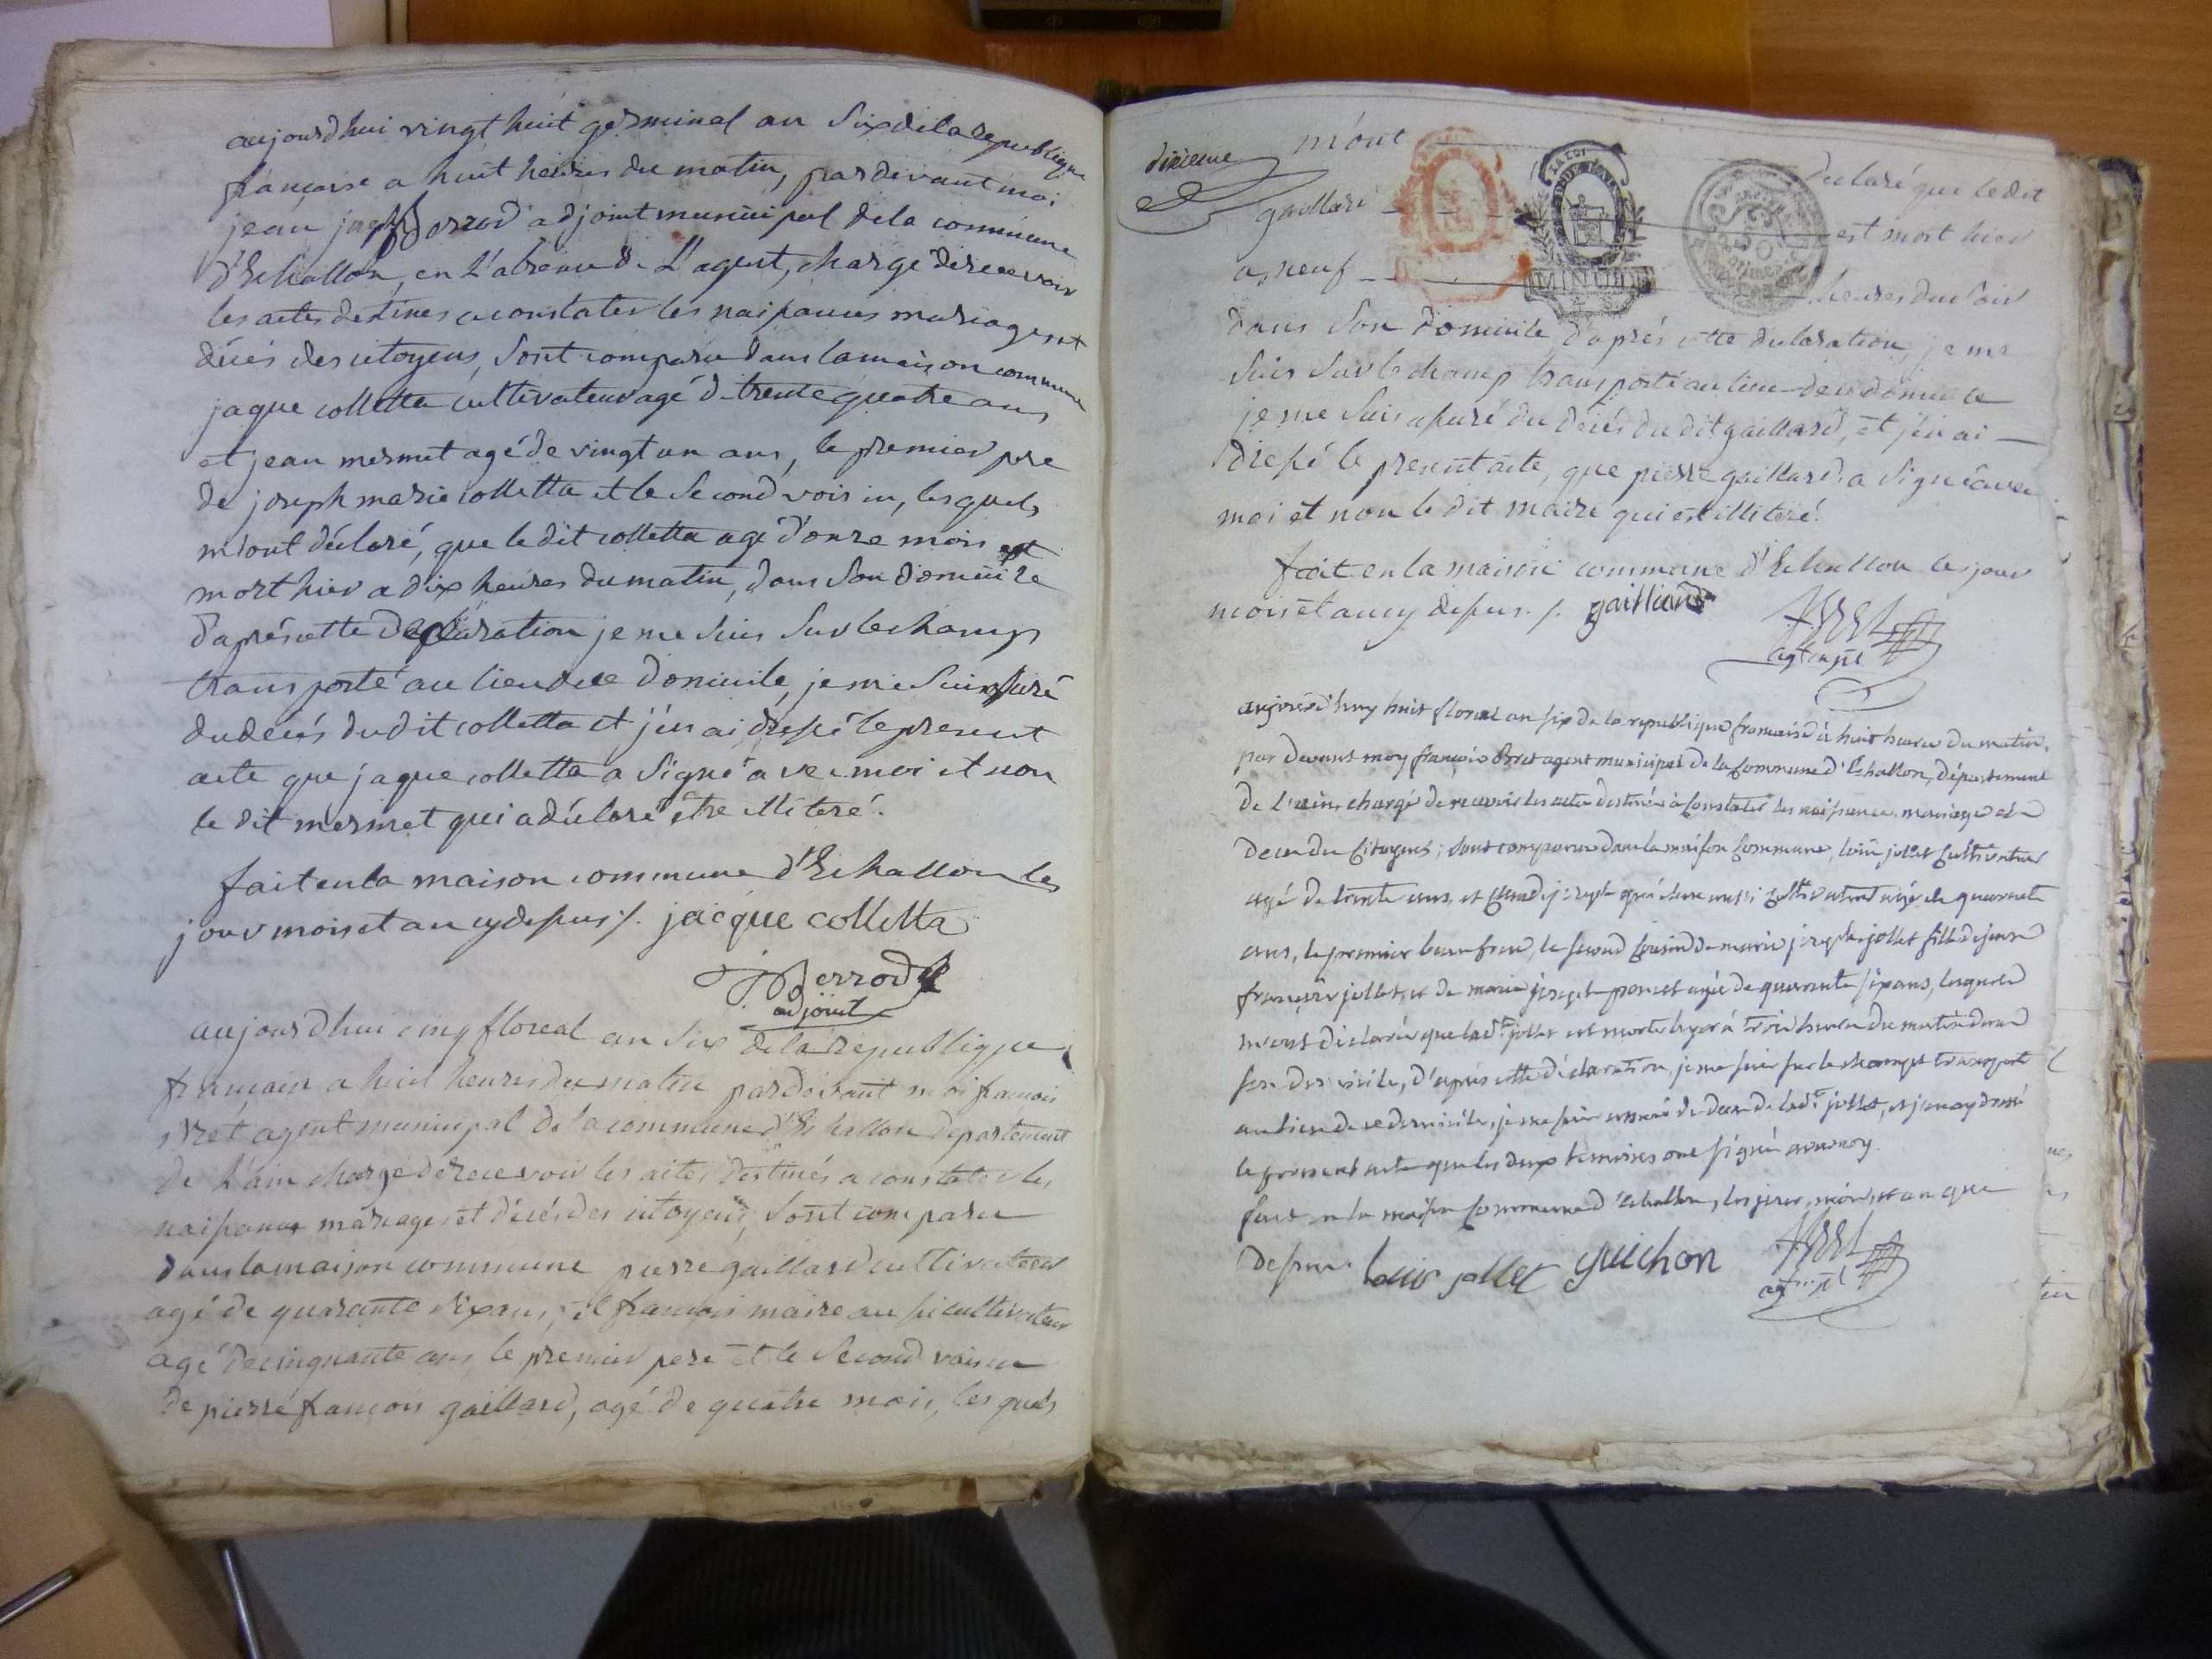 aujourdhui vingt huit germinal an six de la republique
francaise a huit heures du matin, pardevant moi
jean jph Berrod adjoint municipal de la commune
d'Echallon, en L'absence de L'agent, charge de recevoir
les actes destines a constater les naissances mariages et
décés des citoyens, sont comparu dans la maison commune
jaque colletta cultivateur agé de trente quatre ans
et jean mermet agé de vingt un ans, le premier pere
de joseph marie colletta et le second voisin, lesquels
m'ont déclaré, que le dit colletta agé d'onze mois est
mort hier a dix heures du matin, dans son domicile
d'aprés cette declaration je me suis sur le champ
transporté au lieu de ce domicile, je me suis assuré
du decés du dit colletta et j'en ai dressé le present
acte que jaque colletta a signé avec moi et non
le dit mermet qui a déclaré être illiteré.
fait en la maison commune d'Echallon les
jour mois et an cy dessus ./. jacque colletta
JJBerrod
adjoint
aujourdhui cinq floreal an six de la republique
francaise a huit heures du matin pardevant moi francois
Bret agent municipal de la commune d'Echallon departement
de L'ain chargé de recevoir les actes destinés a constater les
naissances mariages et décés des citoyens, sont comparu
dans la maison commune pierre gaillard cultivateur
agé de quarante six ans, et francois maire aussi cultivateur
agé de cinquante ans le premier pere et le second voisin
de pierre francois gaillard, agé de quatre mois, les quels
dixieme
m'ont declaré que le dit
gaillard est mort hier
a neuf heures du soir
LA LOI
MINUTE
dans son domicile d'aprés cette declaration, je me
suis sur le champ transporté au lieu de ce domicile
je me suis assuré du décés du dit gaillard, et j'en ai
dressé le present acte, que pierre gaillard a signé avec
moi et non le dit maire qui est illiteré.
fait en la maison commune d'Echallon les jour
mois et an cy dessus ./. gaillard
Bret
agt mpl
aujourd'huy huit floreal an six de la republique francaise à huit heures du matin,
par devant moy françois Bret agent municipal de la Commune d'Echallon, département
de l'ain, chargé de recevoir les actes destinés à Constater les naissances, mariages et
deces des Citoyens; sont comparus dans la maison Commune, louis jollet Cultivateur
agé de trente ans, et joseph aussi Cultivateur agé de quarante
ans, le premier beau frere, le second Cousin de marie joseph jollet fille de
françois jollet, et de marie joseph agée de quarante six ans, lesquels
m'ont déclaré que ladte jollet est morte hyer à trois heures du matin dans
son domicile, d'après cette déclaration, je me suis sur le champt transporté
au lieu de ce domicile, je me suis assuré du deces de ladte jollet, et j'en ay dressé
le present acte que les deux temoins ont signé avec moy.
fait en la maison Commune d'Echallon, les jour, mois, et an que
dessus. louis jollet guichon Bret
agt mpl